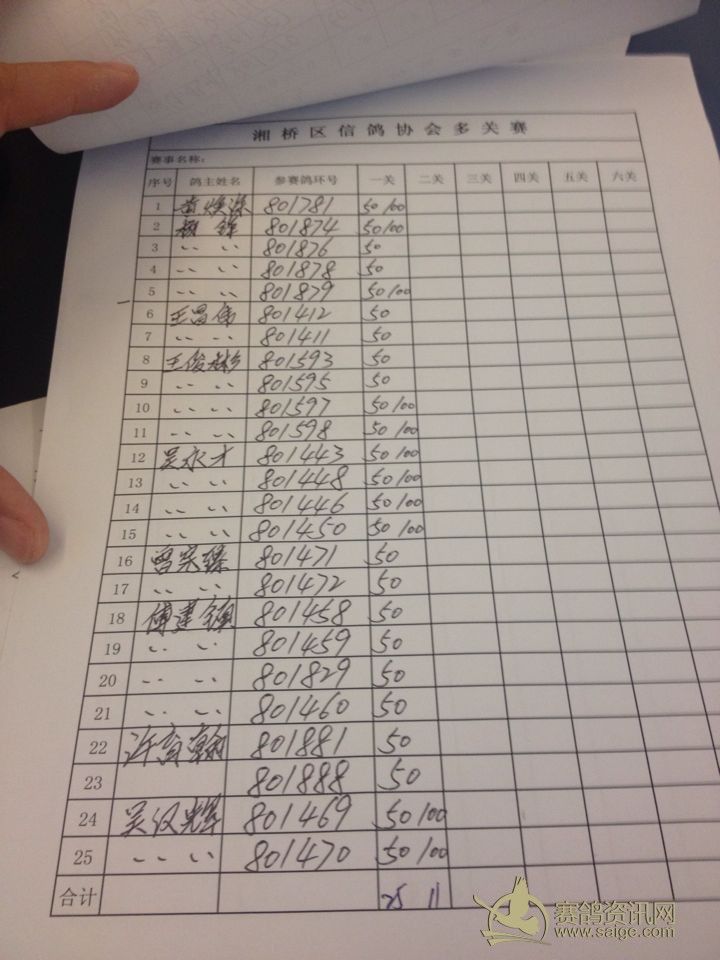 湘桥区信鸽协会多关赛
赛事名称：
序号 鸽主姓名 参赛鸽环号 一关 二关 三关 四关 五关 六关
1 801781 50 100
2 801874 50 100
3 〃 〃 801876 50
4 〃 〃 801878 50
5 〃 〃 801879 50 100
6 王昌伟 801412 50
7 〃 〃 801411 50
8 王俊彬 801593 50
9 〃 〃 801595 50
10 〃 〃 801597 50 100
11 〃 〃 801598 50 100
12 吴永才 801443 50 100
13 〃 〃 801448 50 100
14 〃 〃 801446 50 100
15 〃 〃 801450 50 100
16 曾宗臻 801471 50
17 〃 〃 801472 50
18 傅建 801458 50
19 〃 〃 801459 50
20 〃 〃 801829 50
21 〃 〃 801460 50
22 许育翰 801881 50
23 801888 50
24 吴汉辉 801469 50 100
25 〃 〃 801470 50 100
合计 25 11
赛鸽资讯网
www.saige.com